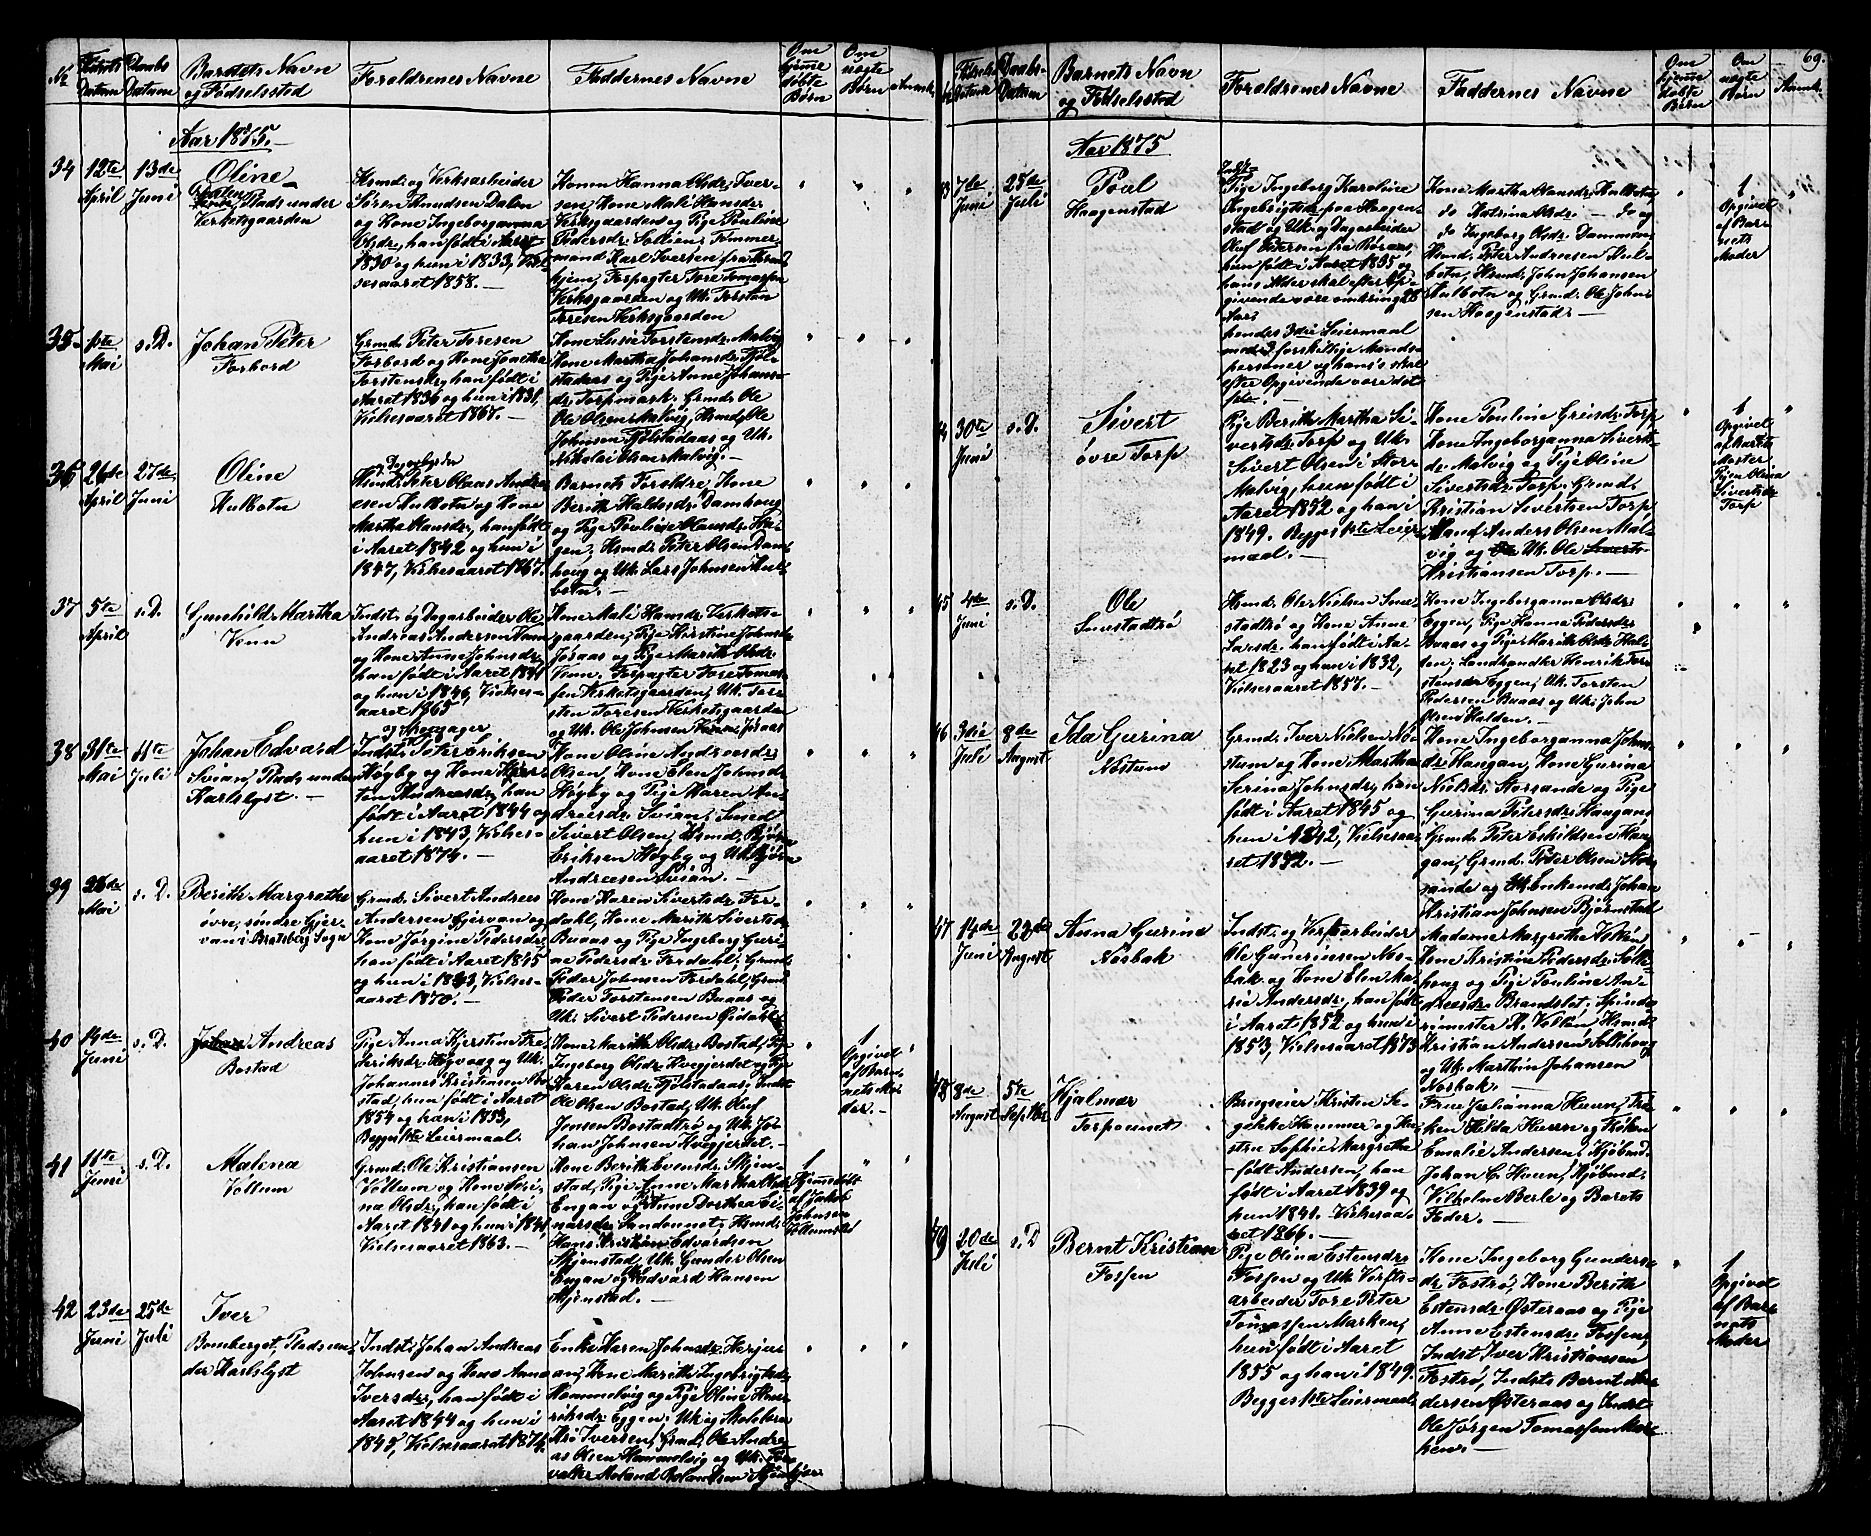 69.
№ Fødsels Datum
Daabs Datum
Barnets Navn
og Fødselssted
Forældrenes Navne
Faddernes Navne
Om hjemmedøbte Børn
Om uægte Børn
Anmk.
Aar 1875.
34 12te April 13de Juni
Oline
Plads under
Verketsgaarden
Hsmd. og Verksarbeider
Søren Knudsen Dalen
og Kone Ingeborganna
Olsdr., han født i Aaret
1830 og hun i 1833, Viel-
sesaaret 1858.
Konen Hanna Olsdr. Iver-
sen, Kone Mali Hansdr.
Verksgaarden og Pige Pauline
Pedersdr. Sollien, Tømmer-
mand Karl Iversen fra Trond-
hjem, Forpagter Tore Tomassen
Verksgaarden og Uk. Torsten
Toresen Verksgaarden
35 1ste Mai s. D.
Johan Peter
Forbord
Grmd. Peter Toresen
Forbord og Kone Jonetta
Torstensdr., han født i
Aaret 1836 og hun i 1839,
Vielsesaaret 1867.
Kone Lusie Torstensdr. Malvig
Kone Martha Johansdr. Fjøl-
stadaas og Pige Anne Johans-
dr. Torpmark. Grmd. Ole
Ole Olsen Malvig, Hsmd. Ole
Johnsen Fjølstadaas og Uk.
Nikolai Olsen Malvig.
36 26de April 27de Juni
Oline
Hulbotn
Hsmd. Peter Olaus Andre-
esen Hulbotn og Kone
Martha Hansdr., han født
i Aaret 1842 og hun i
1847, Vielsesaaret 1867.
Barnets Forældre, Kone
Berith Haldosdr. Damhoug
og Pige Pauline Olausdr. Ha-
gen, Hsmd. Peter Olsen Dam-
houg og Uk. Lars Johnsen Hul-
botn.
37 5te April s. D.
Gunhild Martha
Venn
Indst. og Dagarbeider Ole
Andreas Andersen Venn
og Kone Anne Johnsdr.,
han født i Aaret 1841
og hun i 1840, Vielses-
aaret 1865
Kone Mali Hansdr. Verkets-
gaarden, Pige Kirstine Johnsdr.
Jøsaas og Pige Marith Olsdr.
Venn. Forpagter Tore Tomas-
sen Verketsgaarden, Uk. Tor-
sten Toresen Verketsgaarden
og Uk. Ole Johnsen Jøsaas
38 31te Mai 11te Juli
Johan Edvard
Svian, Plads under
Karlslyst.
Indst. Peter Eriksen
Høgby og Kone Kjer-
sten Andreasdr., han
født i Aaret 1844 og
hun i 1843, Vielses-
aaret 1874.
Kone Oline Andreasdr.
Olsen, Kone Elen Johnsdr.
Høgby og Pige Karen An-
dreasdr. Svian, Smed
Sivert Olsen, Hsmd. Bjørn
Eriksen Høgby og Uk. Bjørn
Andreesen Svian.
39 28de Mai s. D.
Berith Margrethe
øvre, søndre Gjer-
van i Bratsberg Sogn
Grmd. Sivert Andreas
Andersen Gjervan og
Kone Jørgine Pedersdr.,
han født i Aaret 1845
og hun i 1843, Vielses-
aaret 1870.
Kone Karen Sivertsdr. For-
dahl, Kone Marith Sivertsdr.
Buaas og Pige Ingeborg Guri-
ne Pedersdr. Fordahl; Grmd.
Peder Johnsen Fordahl, Grmd.
Peder Torstensen Buaas og
Uk. Sivert Pedersen Qvidahl.
40 14de Juni s. D.
Johan Andreas
Bostad
Pige Anna Kjerstin Fre-
deriksdr. Hogvaag og Uk.
Johannes Kristensen Bo-
stad, hun født i Aaret
1854 og han i 1853,
Begges 1ste Leiermaal.
Kone Marith Olsdr. Bostad, Pige
Ingeborg Olsdr. Kveggjerdet og Pige
Karen Olsdr. Fjølstadaas, Indst.
Ole Olsen Bostad, Uk. Oluf
Jensen Bostadtrø og Uk. Jo-
han Johnsen Kveggjerdet.
1
Opgivet
af Bar-
nets Mo-
der.
41 11te Juni s. D.
Malena
Vollum
Grmd. Ole Kristiansen
Vollum og Kone Seri-
na Olsdr., han født i
Aaret 1841 og hun i 1841,
Vielsesaaret 1863.
Kone Berith Evensdr. Skjen-
stad, Pige Anne Martha Olsdr.
Engan og Anne Dorthea Ei-
narsdr. Sandennet, Hsmd.
Hans Kristian Edvardsen
Skjenstad, Uk. Gunder Olsen
Engan og Edvard Hansen
Skjenstad.
1
Hjemmedøbt
af Jakob
Johnsen
Vollumstrø
42 23de Juni 25de Juli
Iver
Bomberget, Plads un-
der Karlslyst
Indst. Johan Andreas
Johnsen og Kone Anna
Iversdr., han født i
Aaret 1844 og hun i
1845, Vielsesaaret 1874.
Enke Karen Johnsdr. Herjer-
aan, Kone Marith Ingebrigtsdr.
Hommelvig og Pige Oline Hen-
riksdr. Eggen. Uk. og Skolelærer
Iversen, Grmd. Ole Andre-
as Olsen Hommelvig og Uk. For-
valter Roland Rolandsen Stjørdalen
Barnets Navn
og Fødselssted
Forældrenes Navne
Faddernes Navne
Om hjemmedøbte Børn
Om uægte Børn
Anmk.
Aar 1875
43 7de Juni 25de Juli
Poul
Haagenstad
Indst.
Pige Ingeborg Karoline
Ingebrigtsdr. paa Haagen-
stad og Uk. og Dagarbeider
Oluf Petersen fra Røraas,
hun født i Aaret 1835 og
hans Alder skal efter Op-
givende være omkring 28
Aar.
hendes 3die Leiermaal
med 3 forskjellige Mands-
personer og hans's skal
efter Opgivende være det
første.
Kone Martha Hansdr. Hulbotn
do Katrina Olsdr. do og
do Ingeborg Olsdr. Dammen
Hsmd. Peter Andreesen Hul-
botn, Hsmd. John Johansen
Hulbotn og Grmd. Ole John-
sen Haagenstad.
1
Opgivet
af Bar-
nets
Moder
44 30te Juni s. D.
Sivert
øvre Torp
Pige Berith Martha Si-
vertsdr. Torp og Uk.
Sivert Olsen i Stor-
Malvig, hun født i
Aaret 1852 og han i
1849. Begges 1ste Leier-
maal.
Kone Pauline Greisdr. Torp
Kone Ingeborganna Siverts-
dr. Malvig og Pige Oline
Sivertsdr. Torp. Grmd.
Kristian Sivertsen Torp
Anders Olsen Mal-
vig og Uk. Ole
Kristiansen Torp.
1
Opgivet
af Barnets
Moster
Pigen Olina
Sivertsdr.
Torp
45 4de Juni s. D.
Ole
Smestadtrø
Hsmd. Ole Nielsen Sme-
stadtrø og Kone Anne
Larsdr. han født i Aa-
ret 1823 og hun i 1832,
Vielsesaaret 1857.
Kone Ingeborganna Olsdr.
Eggen, Pige Hanna Pedersdr.
Buaas og Pige Marith Olsdr. Hal-
sen, Landhandler Henrik Tor-
stensen Eggen, Uk. Torsten
Pedersen Buaas og Uk. John
Olsen Halden.
46 3die Juli 8de August
Ida Gurina
Nostum
Grmd. Iver Nielsen No-
stum og Kone Martha
Serina Johnsdr., han
født i Aaret 1845 og
hun i 1842, Vielsesaa-
ret 1872.
Kone Ingeborganna Johns-
dr. Haugan, Kone Gurina
Nielsdr. Storsande og Pige
Gurina Petersdr. Haugan;
Grmd. Peter Eskildsen Hau-
gan, Grmd. Peder Olsen Stor-
sande og Enkemd. Johan
Kristian Johnsen Bjørnstad
47 14de Juni 22de August
Anna Gurine
Nosbak
Indst. og Verksarbeider
Ole Gunerinssen Nos-
bak og Kone Elen Ma-
rie Andersdr., han født
i Aaret 1852 og hun i
1853, Vielsesaaret 1873
Madame Margrethe Volken
Kone Kristina Pedersdr. Solli-
houg og Pige Pauline An-
dreasdr. Brandslet. Spinde-
rimester R. Volken, Hsmd.
Kristian Andersen Sollihoug
og Uk. Marthin Johansen
Nosbak.
48 8de August 5te Septbr
Hjalmar
Torpeunet
Brugseier Kristen Je-
lekke Hammer og Hu-
stru Sophie Margrethe
født Andersen, han
født i Aaret 1839 og
hun 1841. Vielsesaa-
ret 1866.
Frue Julianna Huun, Frø-
ken Hilda Huun og Frøken
Emalie Andersen, Kjøbmd.
Johan C. Huun, Kjøbmd.
Vilhelm Berle og Barnets
Fader.
49 20de Juli s. D
Bernt Kristian
Fossen
Pige Olina Estensdr.
Fossen og Uk. Verfts-
arbeider Tore Peter
Tomassen Marken,
hun født i Aaret
1855 og han i 1849.
Begges 1ste Leiermaal
Kone Ingeborg Gunders-
dr. Fostrø, Kone Berith
Estensdr. Østeraas og Pige
Anne Estensdr. Fossen,
Indst. Iver Kristiansen
Fostrø, Indsts. Bernt An-
dersen Østeraas og Indst.
Ole Jørgen Tomassen Mar-
ken.
1
Opgivet
af Bar-
nets
Moder